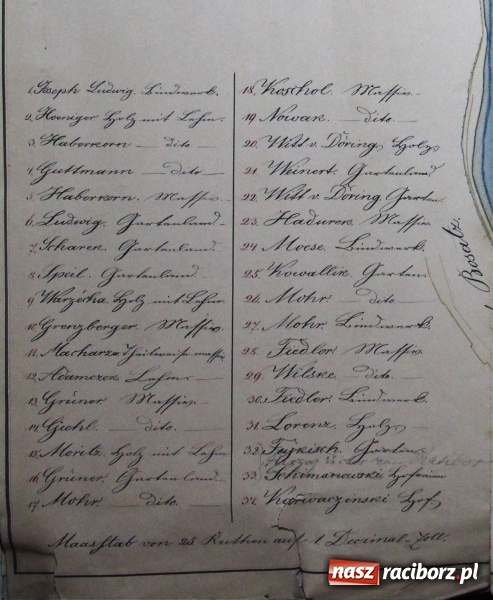 1. Joseph Ludwig. Bindwerk.
2. Hoeniger Holz mit Lehm
3. Haberkorn — dito —
4. Guttmann — dito —
5. Haberkorn. Massiv.
6. Ludwig. Gartenland
7. Scharek. Gartenland.
8. Speil. Gartenland
9. Warzecha. Holz mit Lehm
10. Grenzberger. Massiv.
11. Macharza Theilweise massiv
12. Adamczek Lehm
13. Grüner. Massiv.
14. Giehl. — dito. —
15. Moritz. Holz mit Lehm
16. Grüner. Gartenland
17. Mohr. — dito. —
18. Koschol. Massiv.
19. Nowak. — dito. —
20. Witt v. Döring. Holz
21. Weinert. Gartenland
22. Witt v. Döring. Garten
23. Hadurek. Massiv
24. Moese. Bindwerk.
25. Kowallik. Garten
26. Mohr. — dito. —
27. Mohr. Bindwerk.
28. Fiedler. Massiv
29. Wilske. dito. —
30. Fiedler. Bindwerk.
31. Lorenz. Holz
32. Fyrkisch. Garten
33. Schimanowski Hofraum
34. Karwaczinski Hof
Bosatz.
Maasstab von 25 Ruthen auf 1 Decimal-Zoll.
nasz raciborz.pl